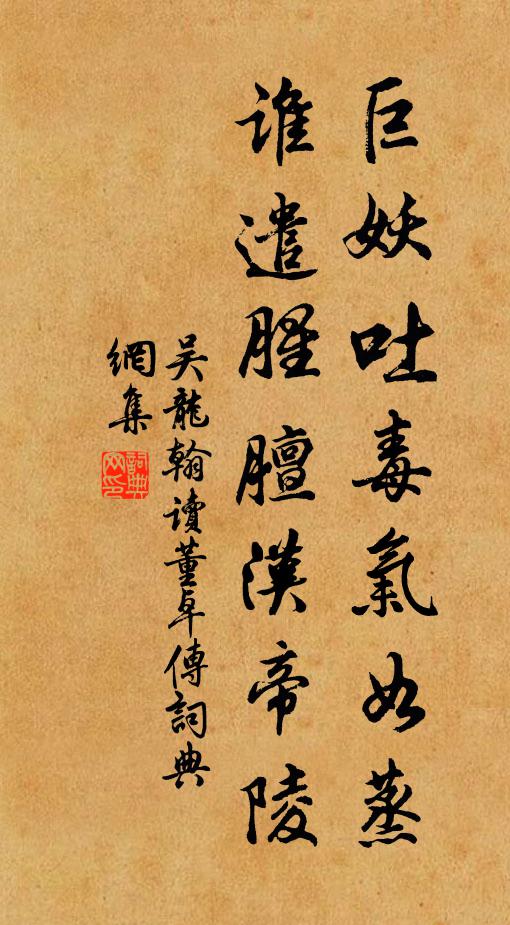 巨妖吐毒氣如蒸
誰遣腥膻漢帝陵
吴龍翰讀董卓傳詞典
網集
詞典
网印